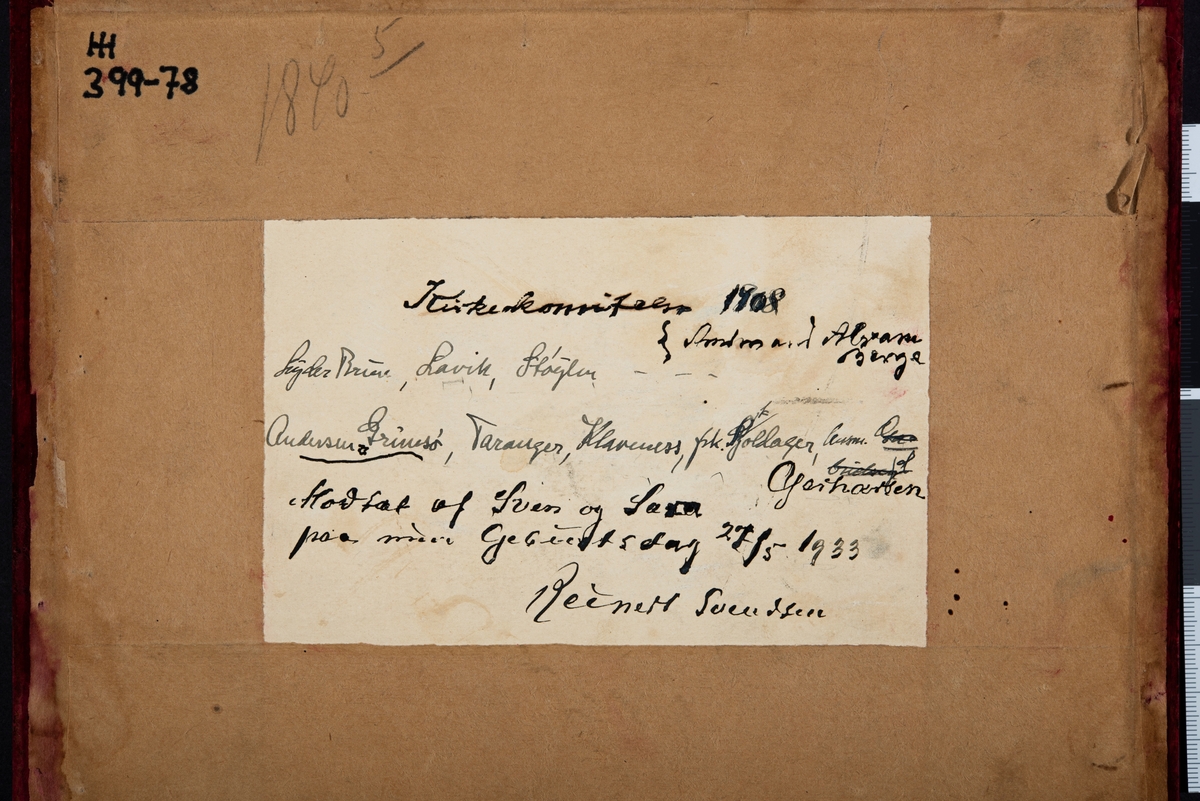 HH
399-78
1840 5
Kirkekomiteen 1908
Abraham
Berge
Lavik, Støylen - - -
Andersen Grimsø, Taranger, Klaveness, frk. Kjølager,
Gerhardsen
Modtat af Sven og Sara
paa min Geburtsdag 27/5 1933
Reinert Svendsen